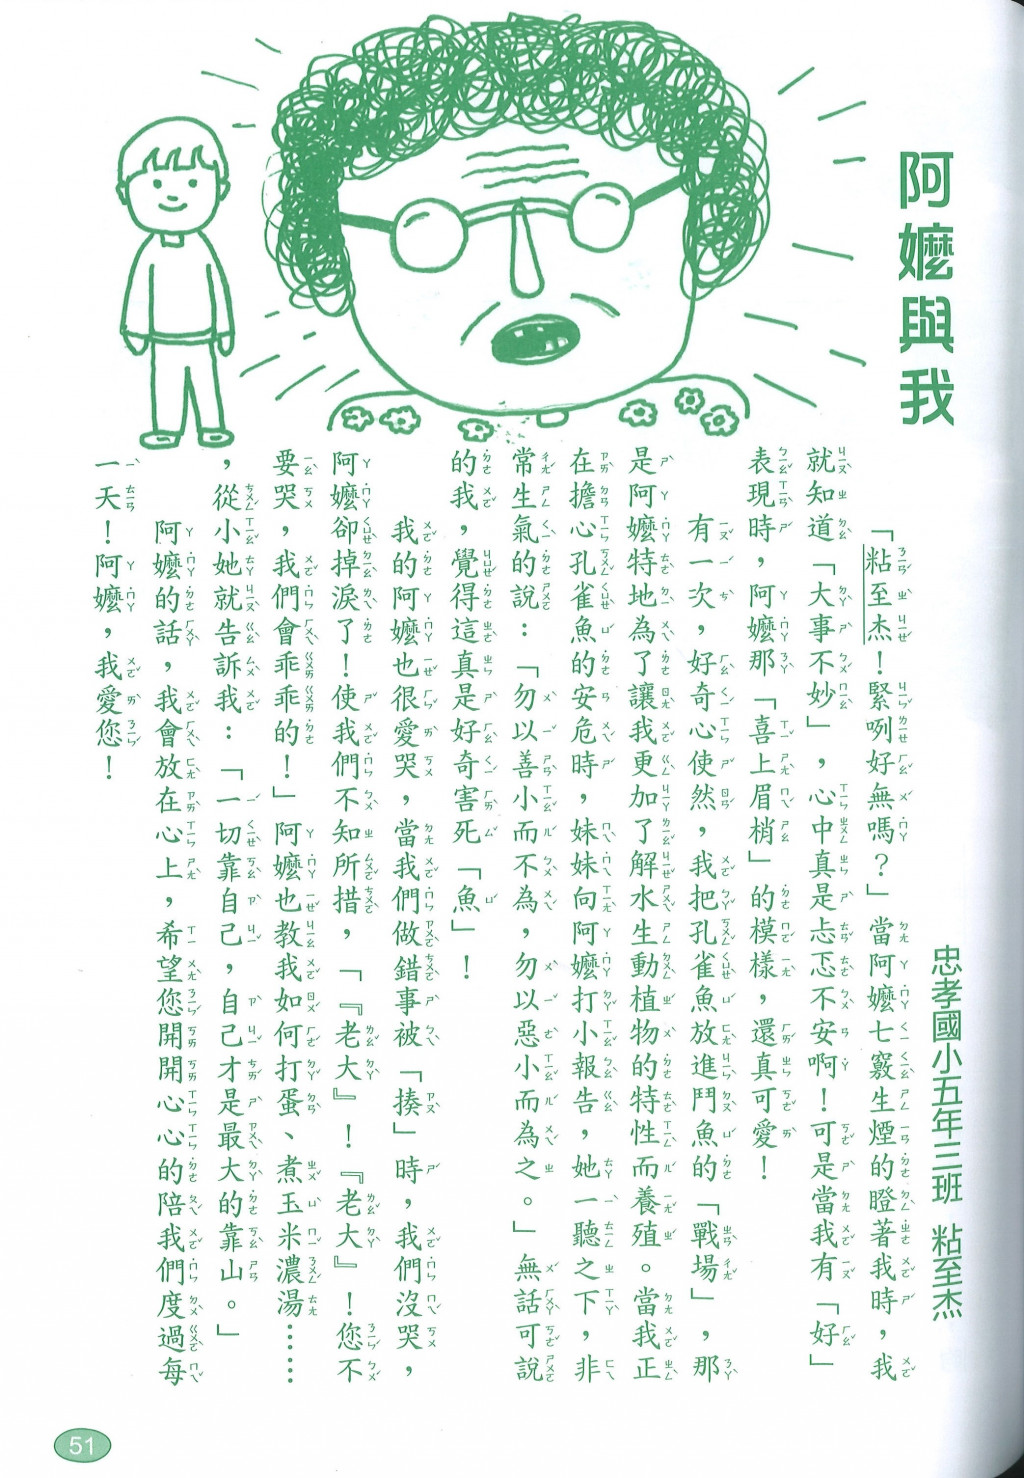 阿嬤與我
忠孝國小五年三班 粘至杰
「粘至杰！緊咧好無嗎？」當阿嬤七竅生煙的瞪著我時，我
就知道「大事不妙」，心中真是忐忑不安啊！可是當我有「好」
表現時，阿嬤那「喜上眉梢」的模樣，還真可愛！
有一次，好奇心使然，我把孔雀魚放進鬥魚的「戰場」，那
是阿嬤特地為了讓我更加了解水生動植物的特性而養殖。當我正
在擔心孔雀魚的安危時，妹妹向阿嬤打小報告，她一聽之下，非
常生氣的說：「勿以善小而不為，勿以惡小而為之。」無話可說
的我，覺得這真是好奇害死「魚」！
我的阿嬤也很愛哭，當我們做錯事被「揍」時，我們沒哭，
阿嬤卻掉淚了！使我們不知所措，「『老大』！『老大』！您不
要哭，我們會乖乖的！」阿嬤也教我如何打蛋、煮玉米濃湯……
，從小她就告訴我：「一切靠自己，自己才是最大的靠山。」
阿嬤的話，我會放在心上，希望您開開心心的陪我們度過每
一天！阿嬤，我愛您！
51